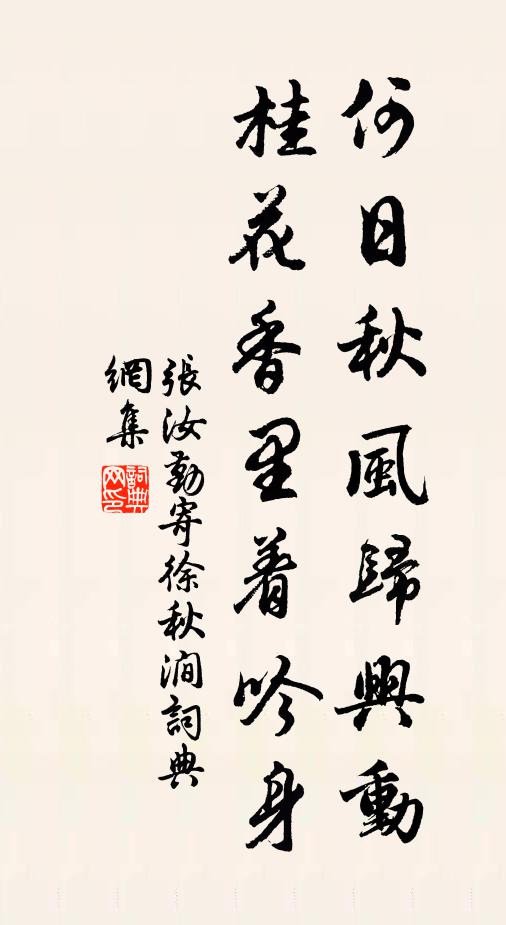 何日秋風歸興動
桂花香里着吟身
張汝勤寄徐秋澗詞典
網集
詞典網印